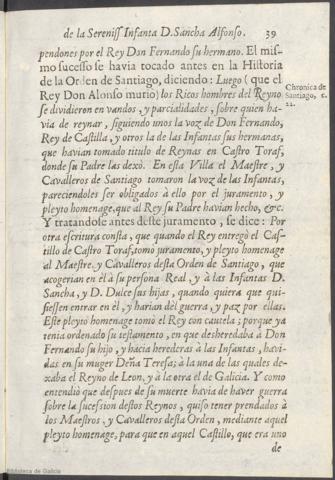 de la Sereniss Infanta D. Sancha Alfonso. 39
pendones por el Rey Don Fernando su hermano. El mis-
mo sucesso se havia tocado antes en la Historia
de la Orden de Santiago, diciendo: Luego (que el
Rey Don Alonso murio) los Ricos hombres del Reyno
Chronica de
Santiago, c.
22.
se dividieron en vandos, y parcialidades, sobre quien ha-
via de reynar, siguiendo unos la voz de Don Fernando,
Rey de Castilla, y otros la de las Infantas sus hermanas,
que havian tomado titulo de Reynas en Castro Toraf,
donde su Padre las dexò. En esta Villa el Maestre, y
Cavalleros de Santiago tomaron la voz de las Infantas,
pareciendoles ser obligados à ello por el juramento, y
pleyto homenage, que al Rey su Padre havian hecho, &c.
Y tratandose antes deste juramento, se dice: Por
otra escritura consta, que quando el Rey entregò el Cas-
tillo de Castro Toraf, tomò juramento, y pleyto homenage
al Maestre, y Cavalleros desta Orden de Santiago, que
acogerian en èl à su persona Real, y à las Infantas D.
Sancha, y D. Dulce sus hijas, quando quiera que qui-
siessen entrar en èl, y harian dèl guerra, y paz por ellas.
Este pleyto homenage tomò el Rey con cautela; porque ya
tenia ordenado su testamento, en que desheredaba à Don
Fernando su hijo, y hacia herederas à las Infantas, havi-
das en su muger Deña Teresa; à la una de las quales de-
xaba el Reyno de Leon, y à la otra el de Galicia. Y como
entendiò que despues de su muerte havia de haver guerra
sobre la sucession destos Reynos, quiso tener prendados à
los Maestros, y Cavalleros desta Orden, mediante aquel
pleyto homenage, para que en aquel Castillo, que era uno
de
Biblioteca de Galicia